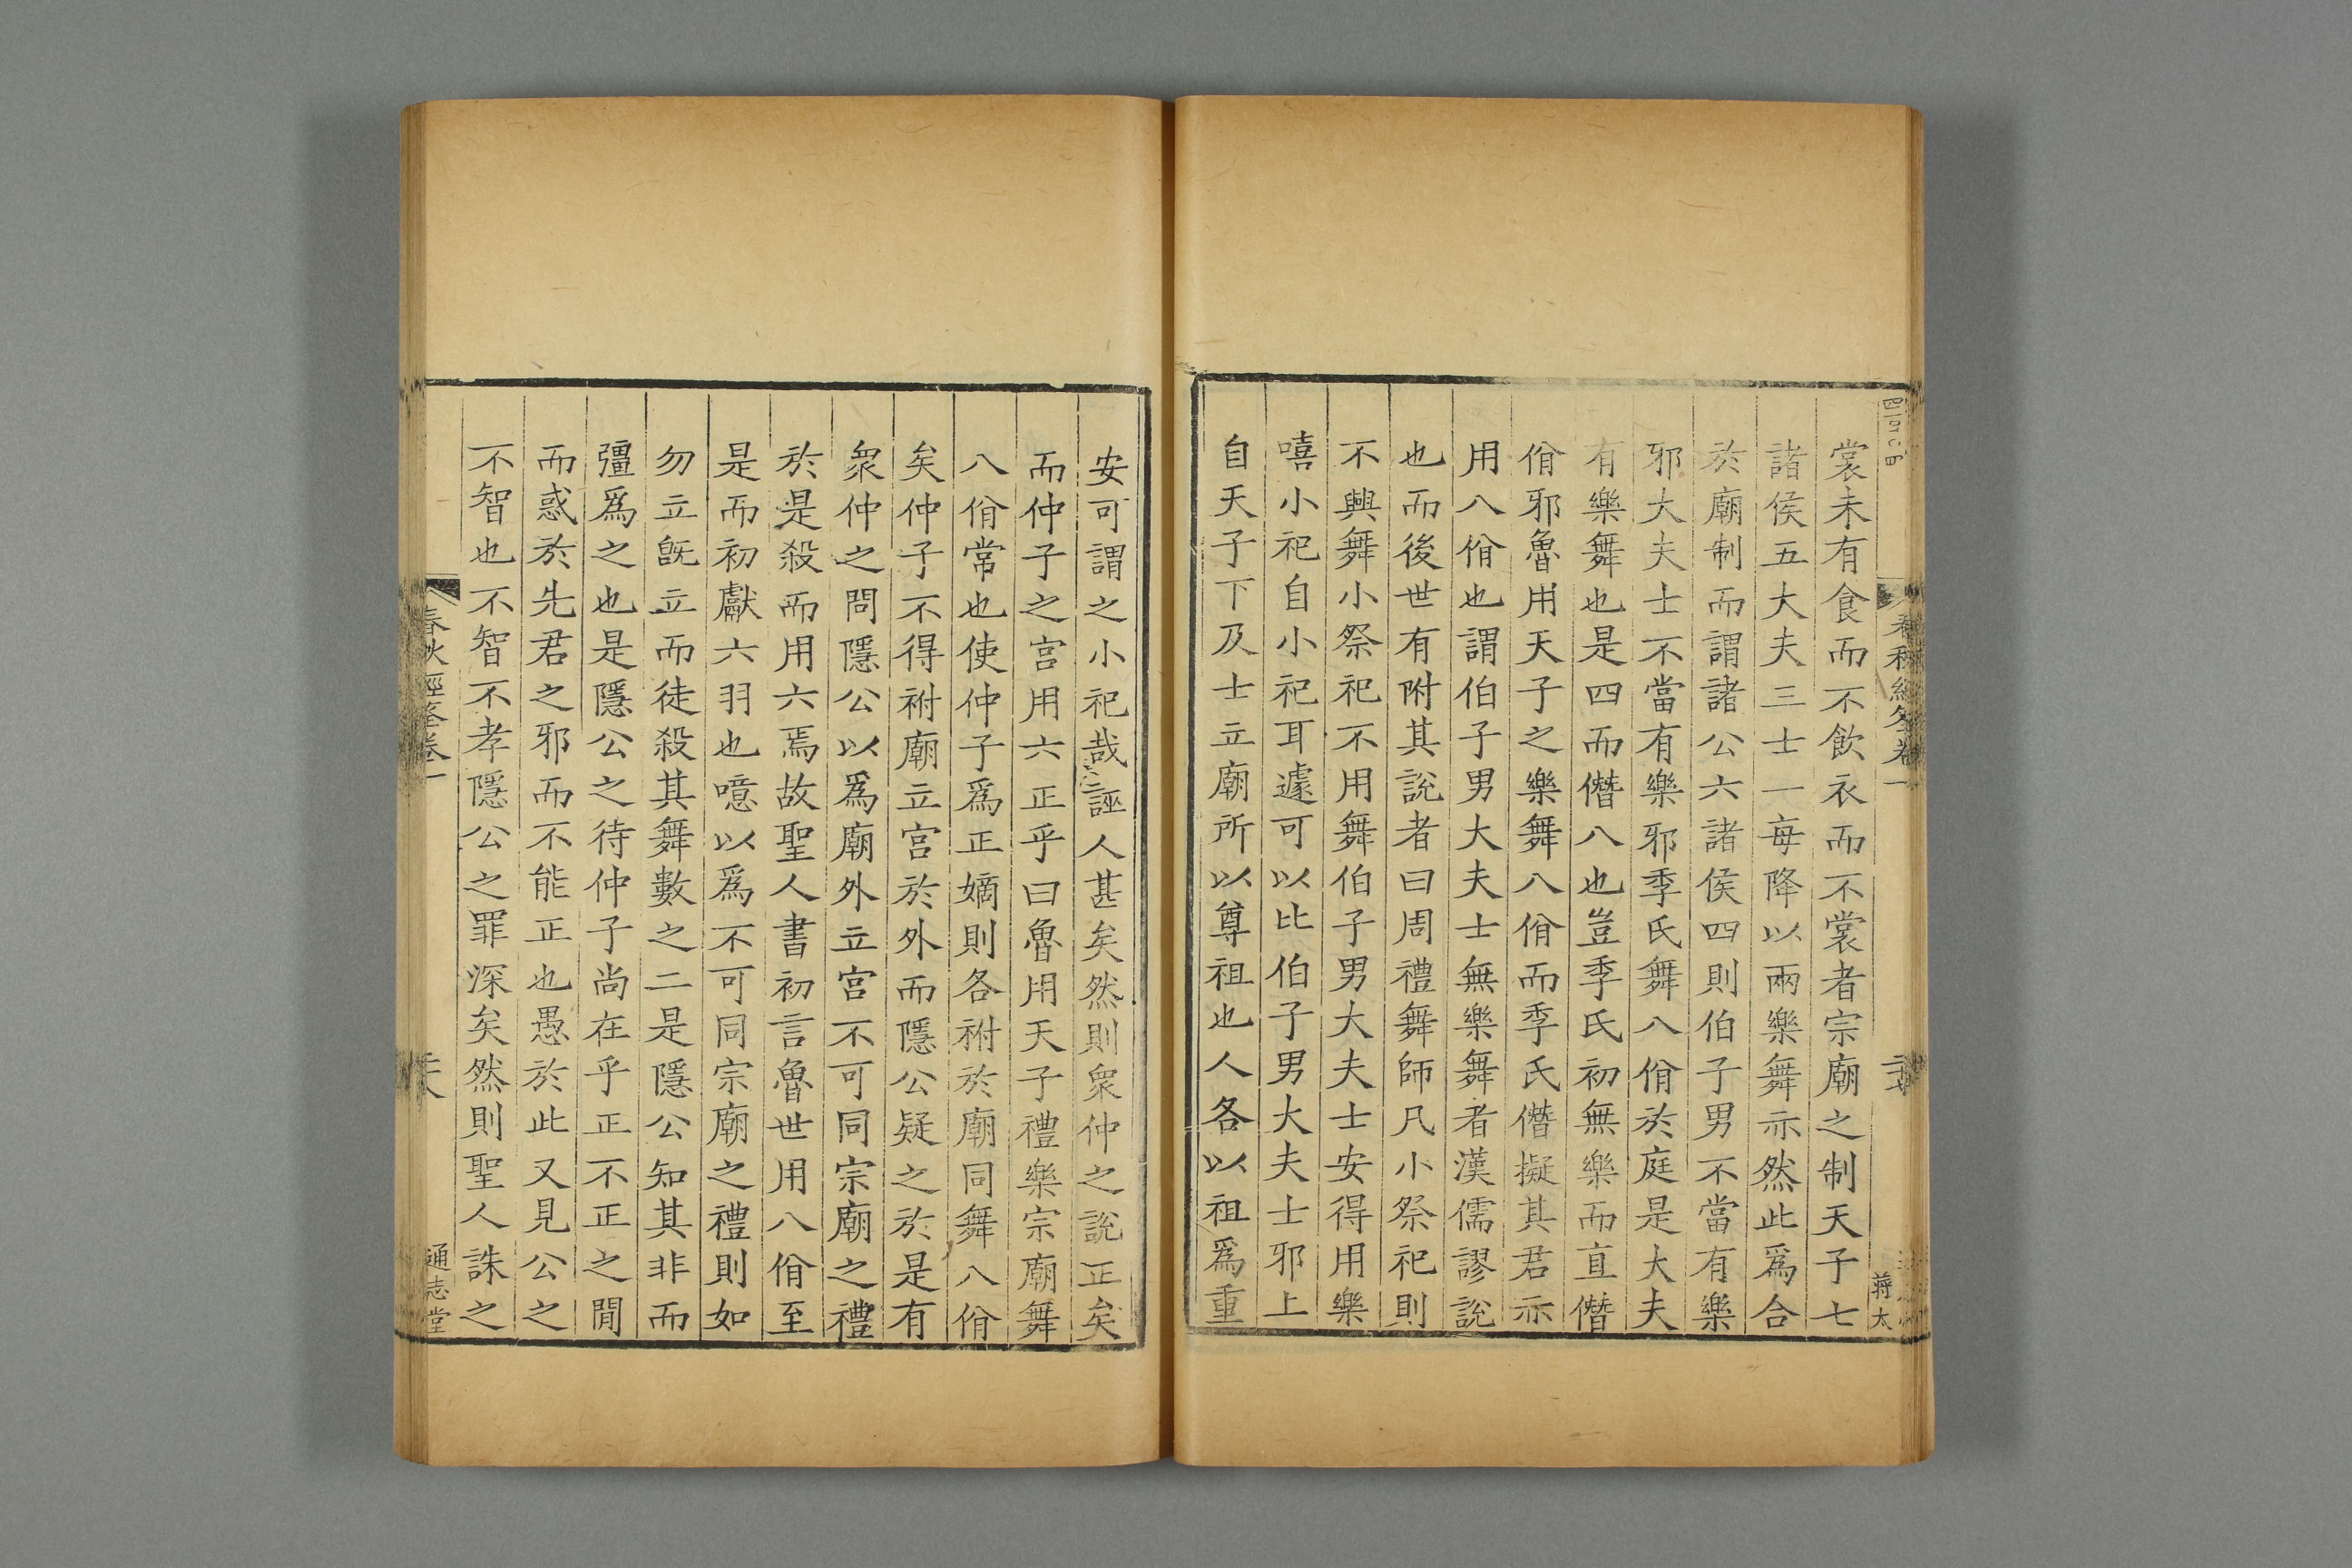 裳未有食而不飲衣而不裳者宗廟之制天子七
諸侯五大夫三士一每降以兩樂舞亦然此爲合
於廟制而謂諸公六諸侯四則伯子男不當有樂
邪大夫士不當有樂邪季氏舞八佾於庭是大夫
有樂舞也是四而僭八也豈季氏初無樂而直僭
佾邪魯用天子之樂舞八佾而季氏僭擬其君亦
用八佾也謂伯子男大夫士無樂舞者漢儒謬說
也而後世有附其說者曰周禮舞師凡小祭祀則
不興舞小祭祀不用舞伯子男大夫士安得用樂
嘻小祀自小祀耳遽可以比伯子男大夫士邪上
自天子下及士立廟所以尊祖也人各以祖爲重
蔣太
安可謂之小祀哉誣人甚矣然則衆仲之說正矣
而仲子之宮用六正乎曰魯用天子禮樂宗廟舞
八佾常也使仲子爲正嫡則各祔於廟同舞八佾
矣仲子不得祔廟立宮於外而隱公疑之於是有
衆仲之問隱公以爲廟外立宮不可同宗廟之禮
於是殺而用六焉故聖人書初言魯世用八佾至
是而初獻六羽也噫以爲不可同宗廟之禮則如
勿立旣立而徒殺其舞數之二是隱公知其非而
彊爲之也是隱公之待仲子尚在乎正不正之間
而惑於先君之邪而不能正也愚於此又見公之
不智也不智不孝隱公之罪深矣然則聖人誅之
春秋經筌卷一
通志堂